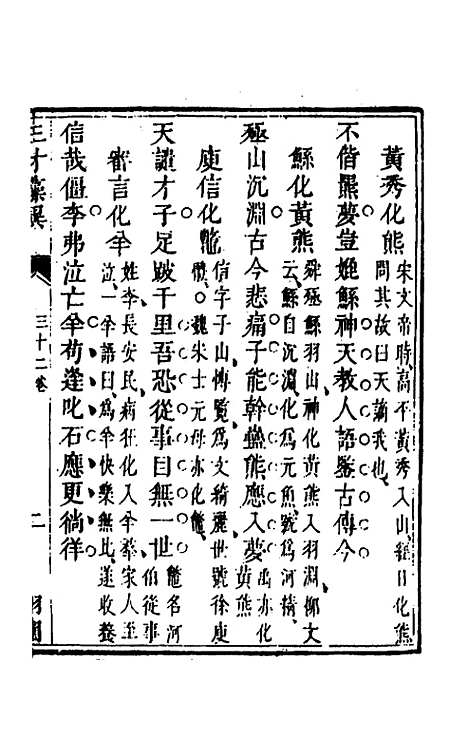 黃秀化熊 宋文帝時高平黃秀入山經日化熊
問其故曰天謫我也
不偕羆夢豈媿鯀神天教人語鑒古傳今
鯀化黃熊 舜殛鯀羽山神化黃熊入羽淵柳文
云鯀自沉淵化為元魚號為河精
殛山沉淵古今悲痛子能幹蠱熊應入夢 禹亦化
黃熊
庾信化鼈 信字子山博覽為文綺麗世號徐庾
體魏朱士元母亦化鼈
天譴才子足跛千里吾恐從事曰無一世 鼈名河
伯從事
審言化羊 姓李長安民病狂化入羊羣家人至
泣一羊語曰為羊快樂無比遂收養
信哉僵李弗泣亡羊苟逢叱石應更徜徉
三才藻異
三十二卷
二